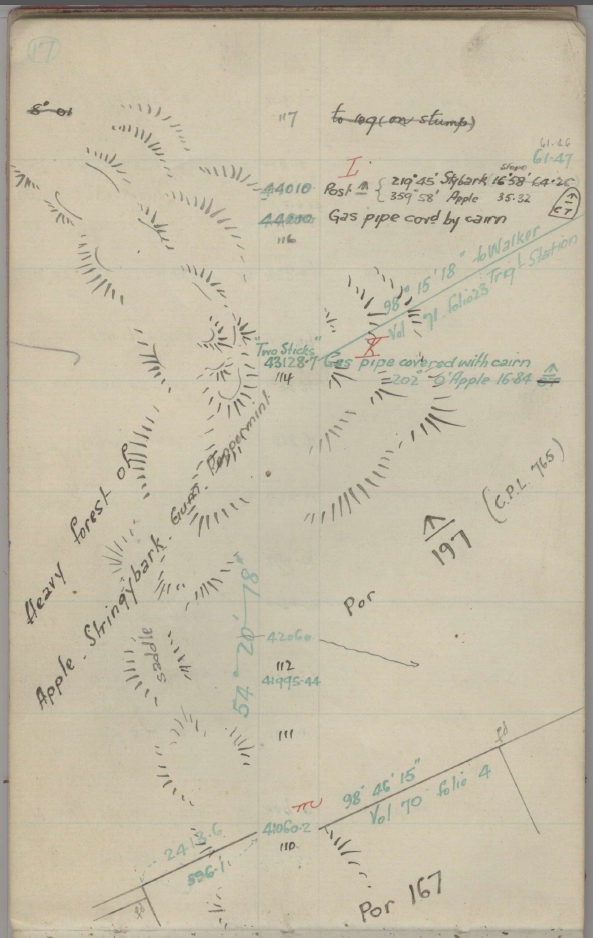 17
8" 01
117
to 109 (on stump)
61.46
61.47
I
slope
44010
Post ↑ { 219° 45' Stybark 16°58' 64.20
359° 58' Apple 35.32
44000
Gas pipe covd by cairn
116
98° 15' 18" to Walker
Vol 71 folio 23 Trig L Station
"Two Sticks"
43128.7
Gas pipe covered with cairn
114
202° 0' Apple 16.84
Heavy forest of
Apple - Stringybark - Gum - Peppermint
(C.P.L. 765)
↑
197
Por
54° 20' 18"
42060
saddle
112
41995.44
111
fd
98° 46' 15"
Vol 70 folio 4
41060.2
110
2413.6
596.1
Por 167
fd